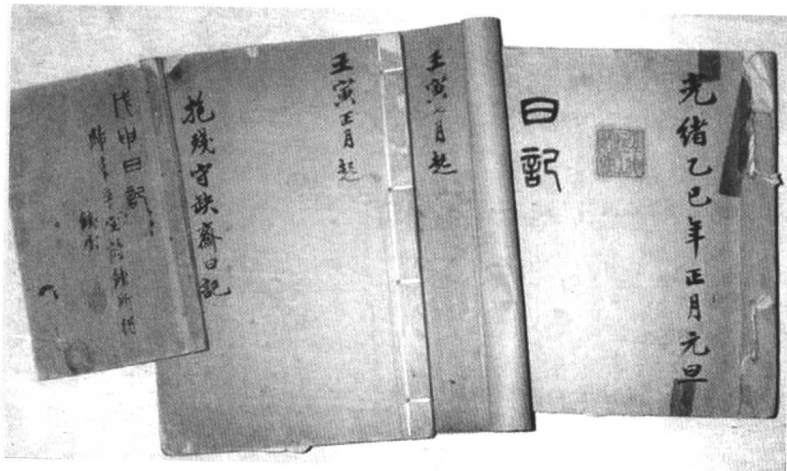 光緒乙巳年正月元旦
日記
壬寅七月起
壬寅正月起
抱殘守缺齋日記
戊申日記